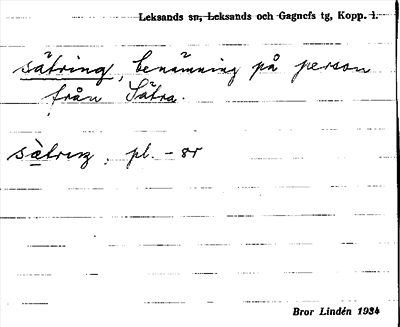 Leksands sn, Leksands och Gagnefs tg, Kopp. l.
sätring, benämning på person
från Sätra.
sätrıŋ. pl. -ər
Bror Lindén 1934